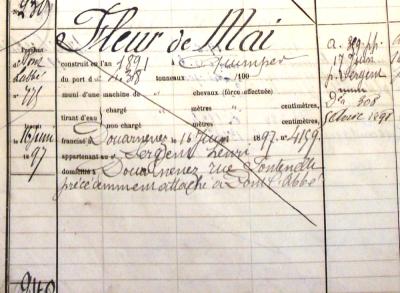 2309
Fleur de Mai
construit en l'an 1891 à Quimper
du port d 4.38 tonneaux /100
muni d'une machine de " chevaux (force effectuée)
chargé " mètres " centimètres,
tirant d'eau
non chargé mètres centimètres,
francisé à Douarnenez le 16 Juin 1897. n° 4159.
appartenant au s. Sergent Henri
domicilié à Douarnenez rue Fontenelle
précédemment attaché à Pont l'Abbé
Pont
Labbé
n°
771
16 Juin
1897
a. 309 pp.
17 Juin
p. Sergent
num
Dn 308
octobre 1898